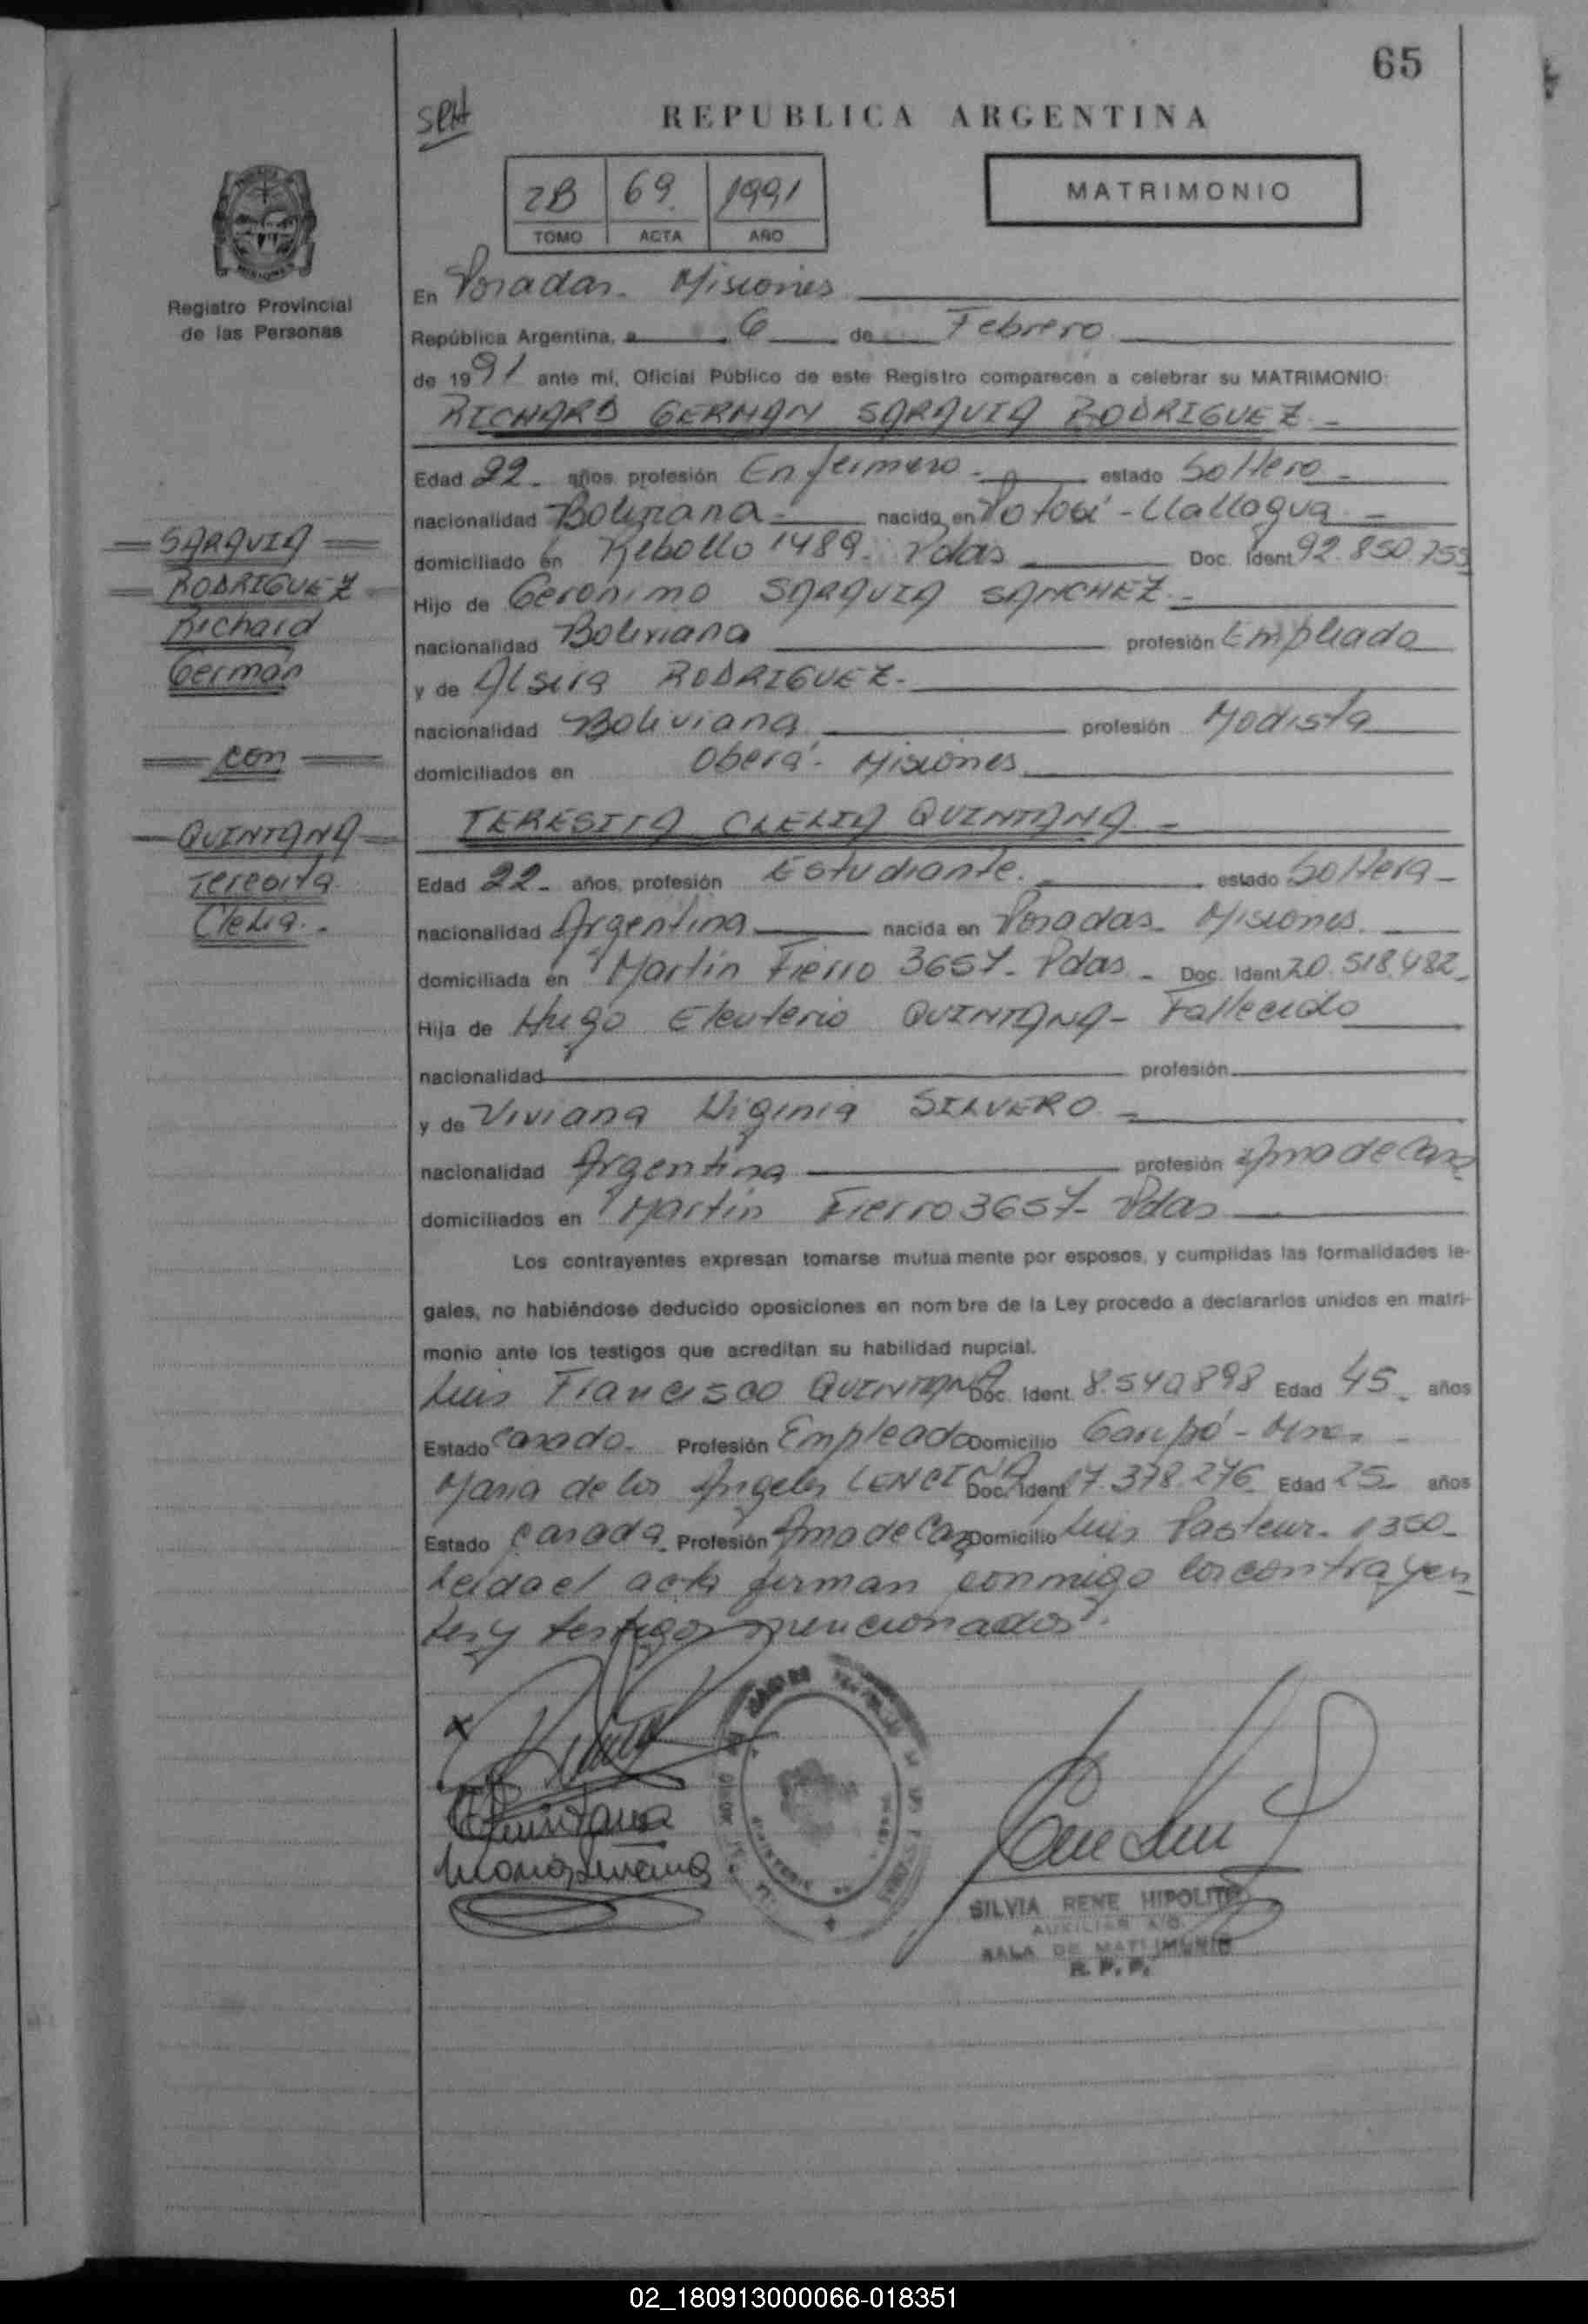 65
SRH
REPUBLICA ARGENTINA
2B 69. 1991
TOMO ACTA AÑO
MATRIMONIO
Registro Provincial
de las Personas
En Posadas. Misiones
República Argentina, a 6 de Febrero
de 1991 ante mí, Oficial Público de este Registro comparecen a celebrar su MATRIMONIO:
RICHARD GERMAN SARAVIA RODRIGUEZ.-
Edad 22.- años profesión Enfermero.- estado Soltero.-
nacionalidad Boliviana.- nacido en Potosí - Llallagua.-
domiciliado en Rebollo 1489. Pdas Doc. Ident. 92.850.755
Hijo de Geronimo SARAVIA SANCHEZ.-
nacionalidad Boliviana profesión Empleado
y de Alsira RODRIGUEZ.-
nacionalidad Boliviana profesión Modista
domiciliados en Oberá - Misiones
SARAVIA
RODRIGUEZ
Richard
Germán
con
QUINTANA
Teresita
Clelia.-
TERESITA CLELIA QUINTANA.-
Edad 22.- años, profesión Estudiante. estado Soltera-
nacionalidad Argentina nacida en Posadas. Misiones.
domiciliada en Martin Fierro 3657. Pdas - Doc. Ident. 20.518.482.-
Hija de Hugo Eleuterio QUINTANA- Fallecido
nacionalidad profesión
y de Viviana Higinia SILVERO.-
nacionalidad Argentina profesión Ama de Casa
domiciliados en Martin Fierro 3657- Pdas
Los contrayentes expresan tomarse mutua mente por esposos, y cumplidas las formalidades le-
gales, no habiéndose deducido oposiciones en nom bre de la Ley procedo a declararlos unidos en matri-
monio ante los testigos que acreditan su habilidad nupcial.
Luis Francisco QUINTANA Doc. Ident. 8.540.898 Edad 45. años
Estado Casado. Profesión Empleado Domicilio Garupá - Mnes. -
Maria de los Angeles LENCINA Doc. Ident. 17.378.276 Edad 25- años
Estado Casada. Profesión Ama de Casa Domicilio Luis Pasteur. 1350-
Leida el acta firman conmigo los contrayen
tes y testigos mencionados.
Quintana
SILVIA RENE HIPOLITO
AUXILIAR
SALA DE MATRIMONIO
R. P. P.
02_180913000066-018351